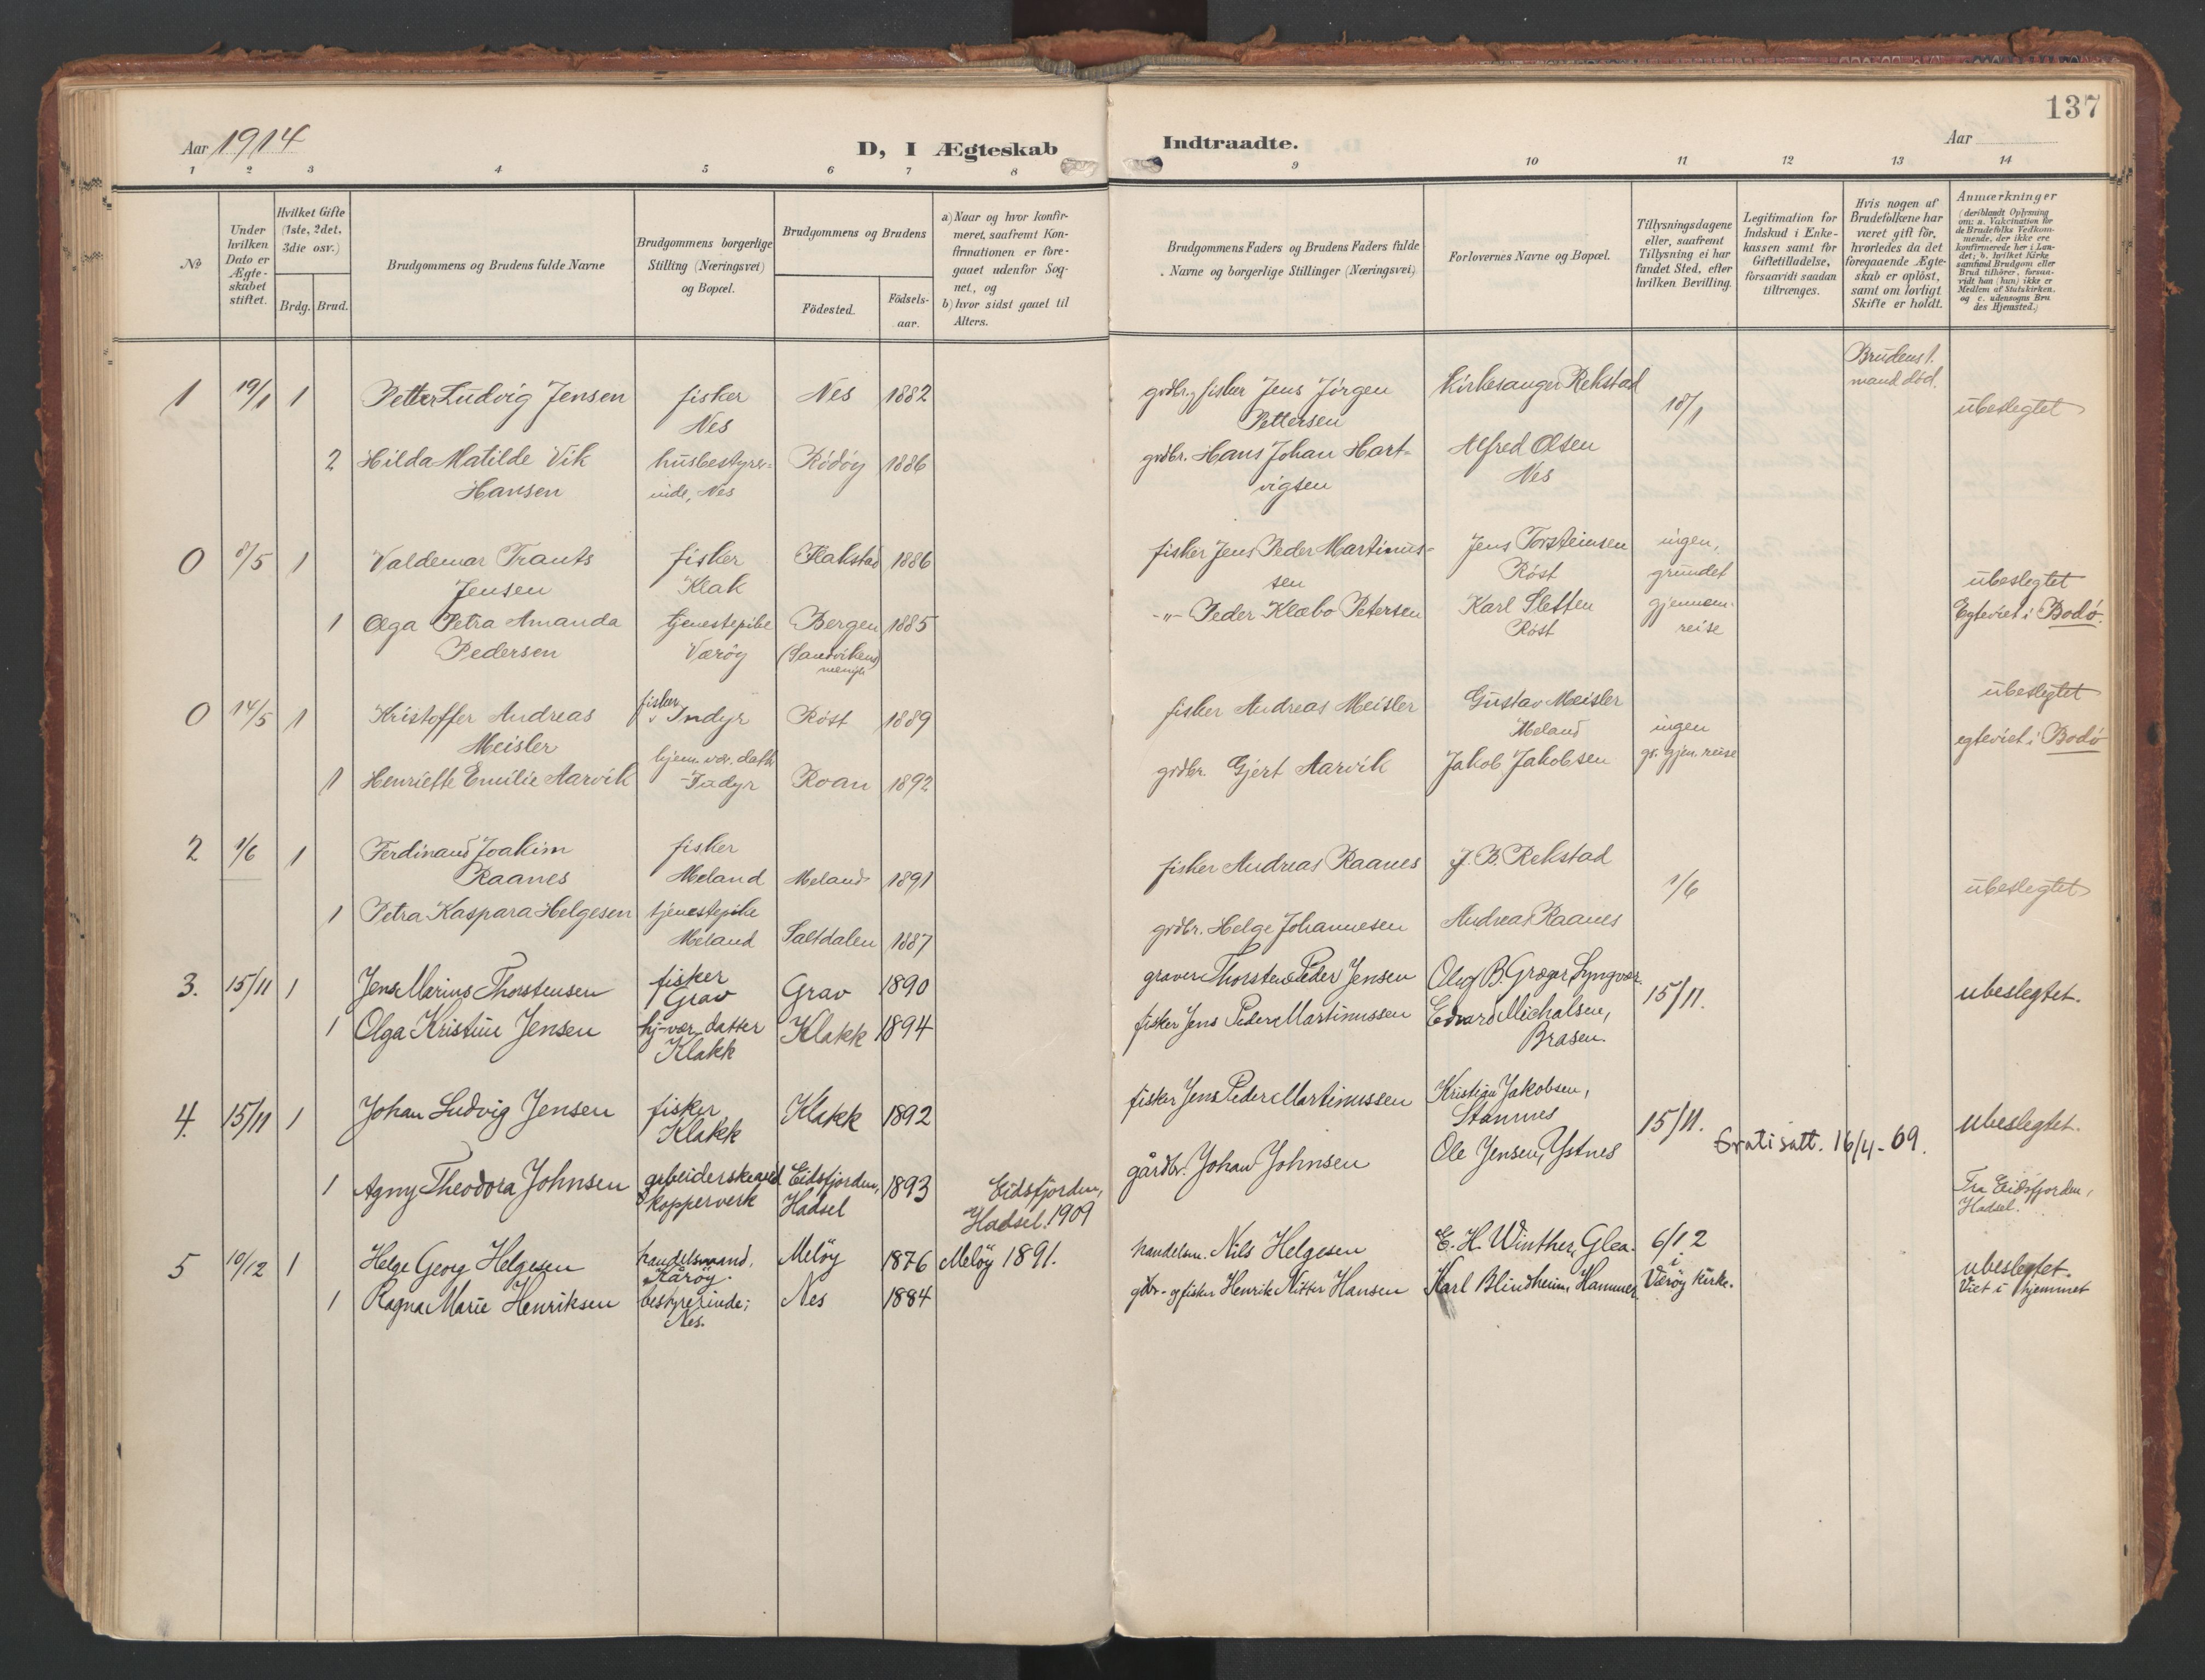 137
Aar 1914
D, I Ægteskab
Indtraadte.
Aar
1 2 3 4 5 6 7 8 9 10 11 12 13 14
No
Under
hvilken
Dato er
Ægte-
skabet
stiftet.
Hvilket Gifte
(1ste, 2det,
3die osv.)
Brdg. Brud.
Brudgommens og Brudens fulde Navne
Brudgommens borgerlige
Stilling (Næringsvei)
og Bopæl.
Brudgommens og Brudens
Födested.
Födsels-
aar.
a) Naar og hvor konfir-
meret, saafremt Kon-
firmationen er fore-
gaaet udenfor Sog-
net, og
b) hvor sidst gaaet til
Alters.
Brudgommens Faders og Brudens Faders fulde
Navne og borgerlige Stillinger (Næringsvei)
Forlovernes Navne og Bopæl.
Tillysningsdagene
eller, saafremt
Tillysning ei har
fundet Sted, efter
hvilken Bevilling.
Legitimation for
Indskud i Enke-
kassen samt for
Giftetilladelse,
forsaavidt saadan
tiltrænges.
Hvis nogen af
Brudefolkene har
været gift för,
hvorledes da det
foregaaende Ægte-
skab er oplöst,
samt om lovligt
Skifte er holdt.
Anmærkninger
(deriblandt Oplysning
om: a. Vakcination for
de Brudefolks Vedkom-
mende, der ikke ere
konfirmerede her i Lan-
det; b. hvilket Kirke
samfund Brudgom eller
Brud tilhörer, forsaa-
vidt han (hun) ikke er
Medlem af Statskirken.
og c. udensogns Bru
des Hjemsted.)
1 19/1 1 Petter Ludvig Jensen fisker Nes 1882 gdbr. og fisker Jens Jörgen Kirkesanger Rekstad 18/1 Brudens 1. ubeslegtet
Nes Pettersen mand död.
2 Hilda Matilde Vik husbestyrer- Rödöy 1886 gdbr. Hans Johan Hart- Alfred Olsen
Hansen inde, Nes vigsen Nes
0 8/5 1 Valdemar Trants fisker Flakstad 1886 fisker Jens Peder Martinus- Jens Torsteinsen ingen,
Jensen Klak sen Röst grundet ubeslegtet
1 Olga Petra Amanda tjenestepike Bergen 1885 -"- Peder Klæbo Petersen Karl Sletten gjennem- Egteviet i Bodö.
Pedersen Værøy (Sandvikens Röst reise
menigh
0 14/5 1 Kristoffer Andreas fisker Röst 1889 fisker Andreas Meisler Gustav Meisler ingen ubeslegtet
Meisler Indyr Meland
1 Henriette Emilie Aarvik hjem. vær. datt. Roan 1892 gdbr. Gjert Aarvik Jakob Jakobsen gr. gjen. reise egteviet i Bodö
Indyr
2 1/6 1 Ferdinand Joakim fisker Meland 1891 fisker Andreas Raanes J. B. Rekstad 1/6 ubeslegtet
Raanes Meland
1 Petra Kaspara Helgesen tjenestepike Saltdalen 1887 gdbr. Helge Johannesen Andreas Raanes
Meland
3. 15/11 1 Jens Marius Thorstensen fisker Grav 1890 graver Thorsten Peder Jensen Oluf B. Græger Lyngvær. 15/11. ubeslegtet.
Grav
1 Olga Kristine Jensen hj-vær. datter Klakk 1894 fisker Jens Peder Martinussen Edvard Michalsen,
Klakk Brasen.
4. 15/11 1 Johan Ludvig Jensen fisker Klakk 1892 fisker Jens Peder Martinussen Kristian Jakobsen, 15/11. ubeslegtet.
Klakk Stamnes
Grati satt. 16/4-69.
1 Agny Theodora Johnsen arbeiderske ved Eidsfjorden, 1893 Eidsfjorden, gårdbr. Johan Johnsen Ole Jensen, Ystnes Fra Eidsfjorden,
kopperverk Hadsel Hadsel. 1909 Hadsel.
5 10/12 1 Helge Georg Helgesen handelsmand, Melöy 1876 Melöy 1891. handelsm. Nils Helgesen E. H. Winther, Glea. 6/12 ubeslegtet.
Kåröy. i
1 Ragna Marie Henriksen bestyrerinde; Nes 1884 gdbr- og fisker Henrik Nitter Hansen Karl Blindheim, Hammer Værøy kirke. Viet i hjemmet
Nes.